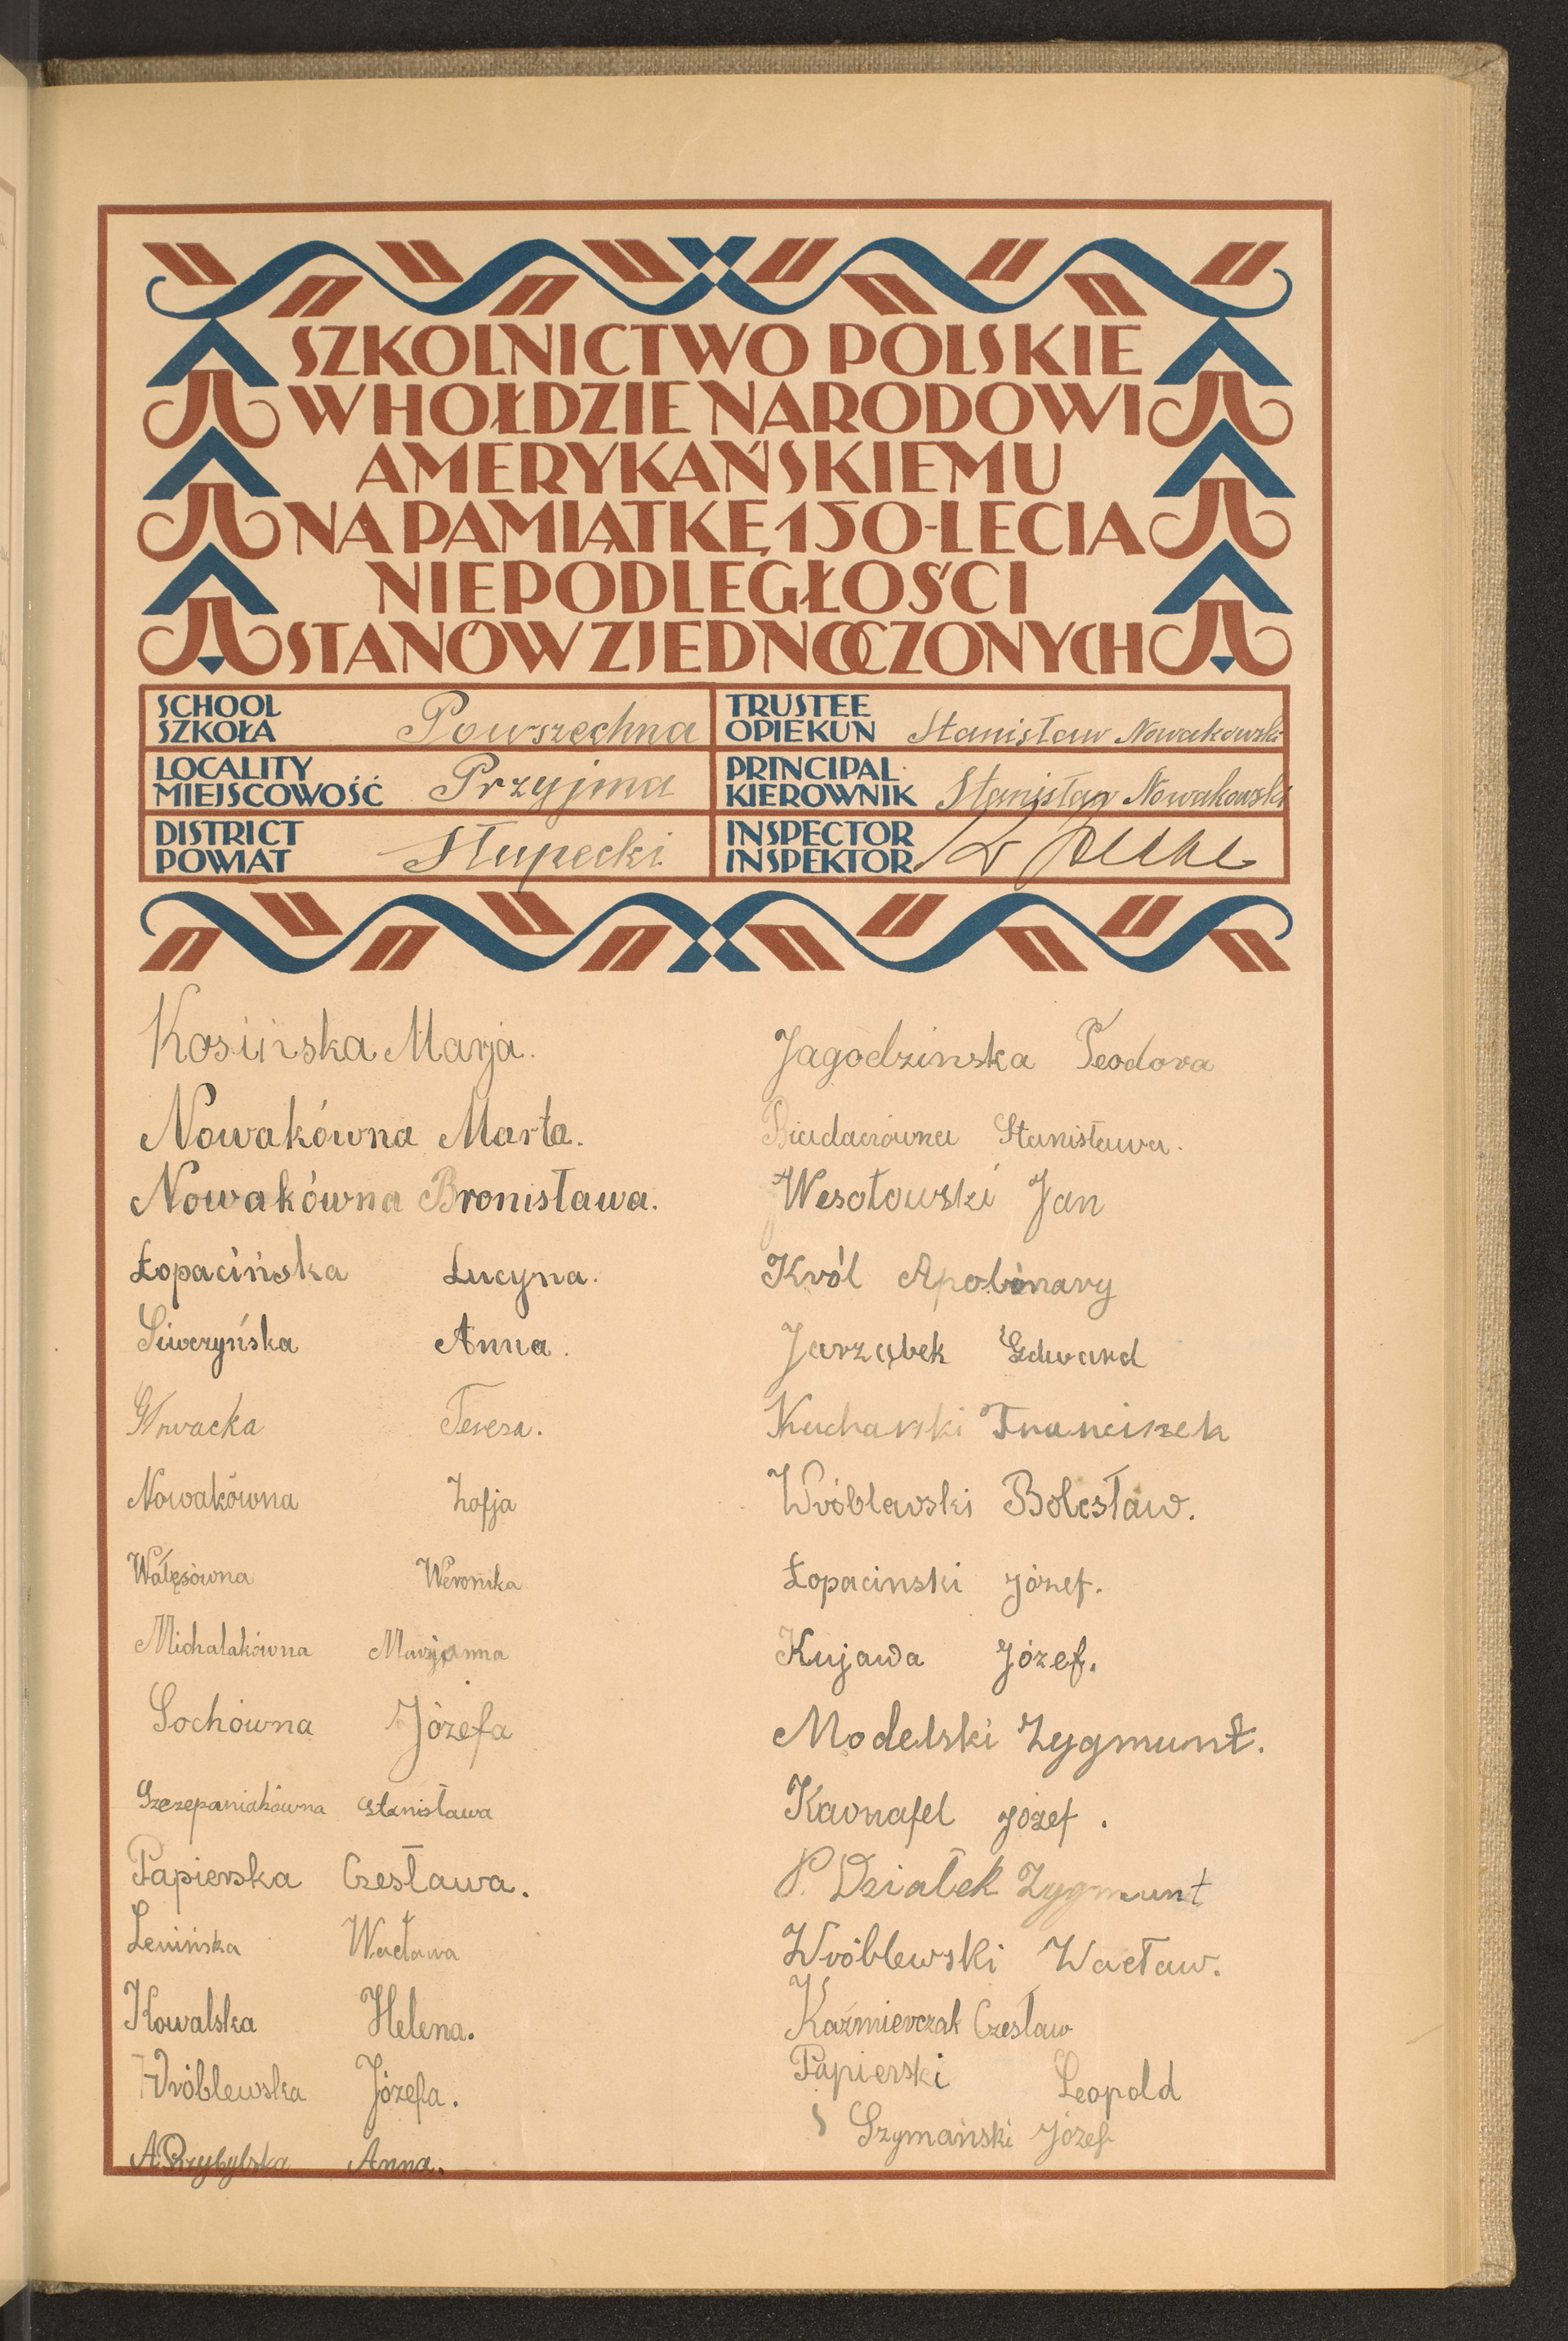 SZKOLNICTWO POLSKIE
W HOŁDZIE NARODOWI
AMERYKAŃSKIEMU
NA PAMIĄTKĘ 150-LECIA
NIEPODLEGŁOŚCI
STANÓW ZJEDNOCZONYCH
SCHOOL
SZKOŁA Powszechna
TRUSTEE
OPIEKUN Stanisław Nowakowski
LOCALITY
MIEJSCOWOŚĆ Przyjma
PRINCIPAL
KIEROWNIK Stanisław Nowakowski
DISTRICT
POWIAT Słupecki
INSPECTOR
INSPEKTOR
Kosińska Marja.
Nowakówna Marta.
Nowakówna Bronisława.
Łopacińska Lucyna.
Siwczyńska Anna.
Teresa.
Nowakówna Zofja
Wałęsówna Weronika
Michalakówna Marjanna
Sochówna Józefa
Szczepaniakówna Stanisława
Papierska Czesława.
Lenińska Wacława
Kowalska Helena.
Wróblewska Józefa.
A Przybylska Anna.
Jagodzinska Teodora
Stanisława.
Wesołowski Jan
Król Apolinary
Jarząbek Edward
Kucharski Franciszek
Wróblewski Bolesław.
Łopacinski Józef.
Kujawa Józef.
Modelski Zygmunt.
Karnafel Józef.
P. Działek Zygmunt
Wróblewski Wacław.
Kaźmierczak Czesław
Papierski Leopold
Szymański Józef